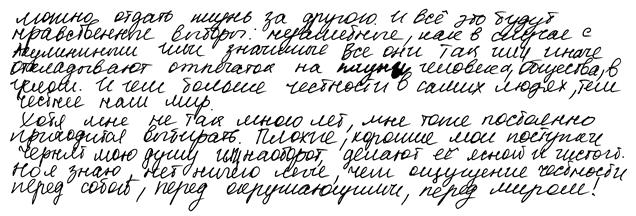 можно отдать жизнь за другого. И всё это будут
нравственные выборы: незаметные, как в случае с
или значимые все они так или иначе
откладывают отпечаток на жизнь человека, общества, в
целом. И чем больше честности в самих людях, тем
честнее наш мир.
Хотя мне не так много лет, мне тоже постоянно
приходится выбирать. Плохие, хорошие мои поступки
чернят мою душу или наоборот, делают её ясной и чистой.
Но я знаю, нет ничего легче, чем ощущение честности
перед собой, перед окружающими, перед миром!